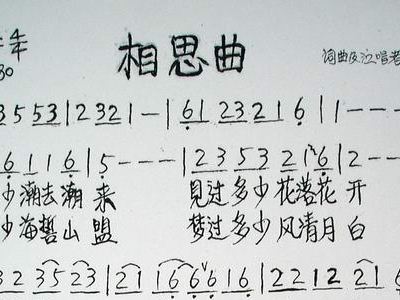 相思曲
词曲及泣唱者
30
35 53 | 2321 - | 61 2321 6 | 1 - - -
6 1 1 6 | 5 - - - | 23 53 21 2 6 | 2 - - -
少潮去潮来 见过多少花落花开
少海誓山盟 梦过多少风清月白
32 35 23 | 21 166 16 | 22 12 21 6